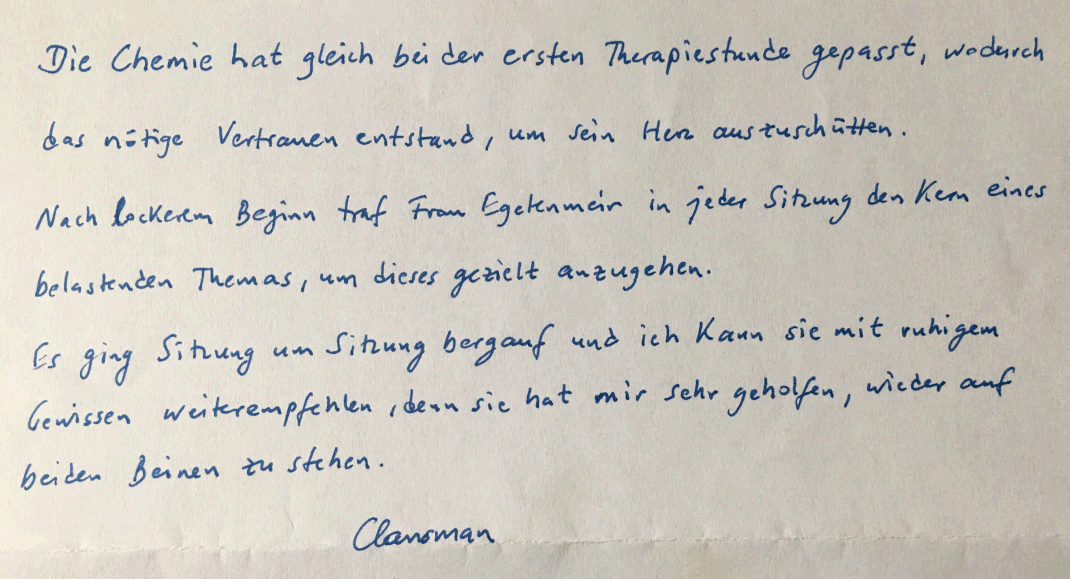 Die Chemie hat gleich bei der ersten Therapiestunde gepasst, wodurch
das nötige Vertrauen entstand, um sein Herz auszuschütten.
Nach lockerem Beginn traf Frau Egetenmeir in jeder Sitzung den Kern eines
belastenden Themas, um dieses gezielt anzugehen.
Es ging Sitzung um Sitzung bergauf und ich kann sie mit ruhigem
Gewissen weiterempfehlen, denn sie hat mir sehr geholfen, wieder auf
beiden Beinen zu stehen.
Clansman